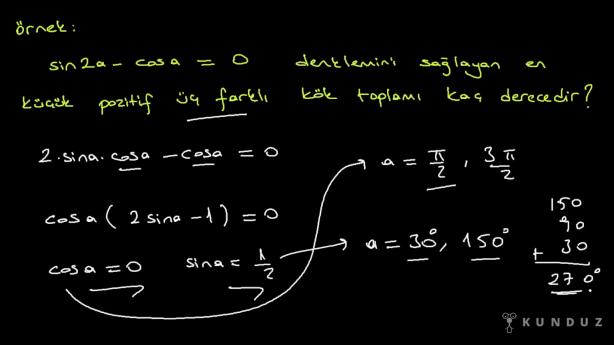 örnek:
sin2a - cosa = 0 denklemini sağlayan en
küçük pozitif üç farklı kök toplamı kaç derecedir?
2.sina.cosa - cosa = 0
cosa (2sina - 1) = 0
cosa = 0 sina = 1/2
a = π/2, 3π/2
a = 30°, 150°
150
90
+ 30
270°
KUNDUZ